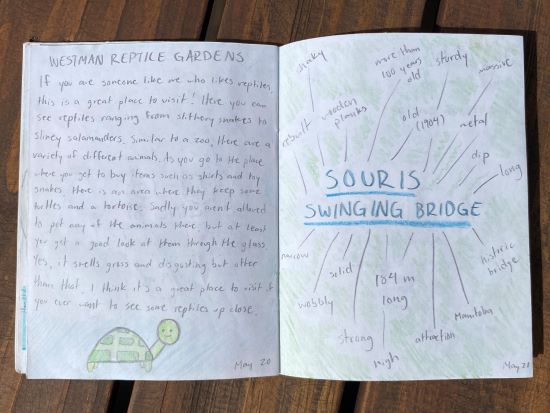 WESTMAN REPTILE GARDENS
If you are someone like me who likes reptiles,
this is a great place to visit! Here you can
see reptiles ranging from slithery snakes to
slimey salamanders. Similar to a zoo, there are a
variety of different animals. As you go to the place
where you get to buy items such as shirts and toy
snakes, there is an area where they keep some
turtles and a tortoise. Sadly, you aren't allowed
to pet any of the animals there, but at least
you get a good look at them through the glass.
Yes, it smells gross and disgusting but other
than that, I think it's a great place to visit if
you ever want to see some reptiles up close.
May 20
shaky
more than
100 years
old
sturdy
massive
rebuilt
wooden
planks
old
(1904)
metal
dip
long
SOURIS
SWINGING BRIDGE
narrow
solid
184 m
long
historic
bridge
wobbly
strong
high
attraction
Manitoba
May 21